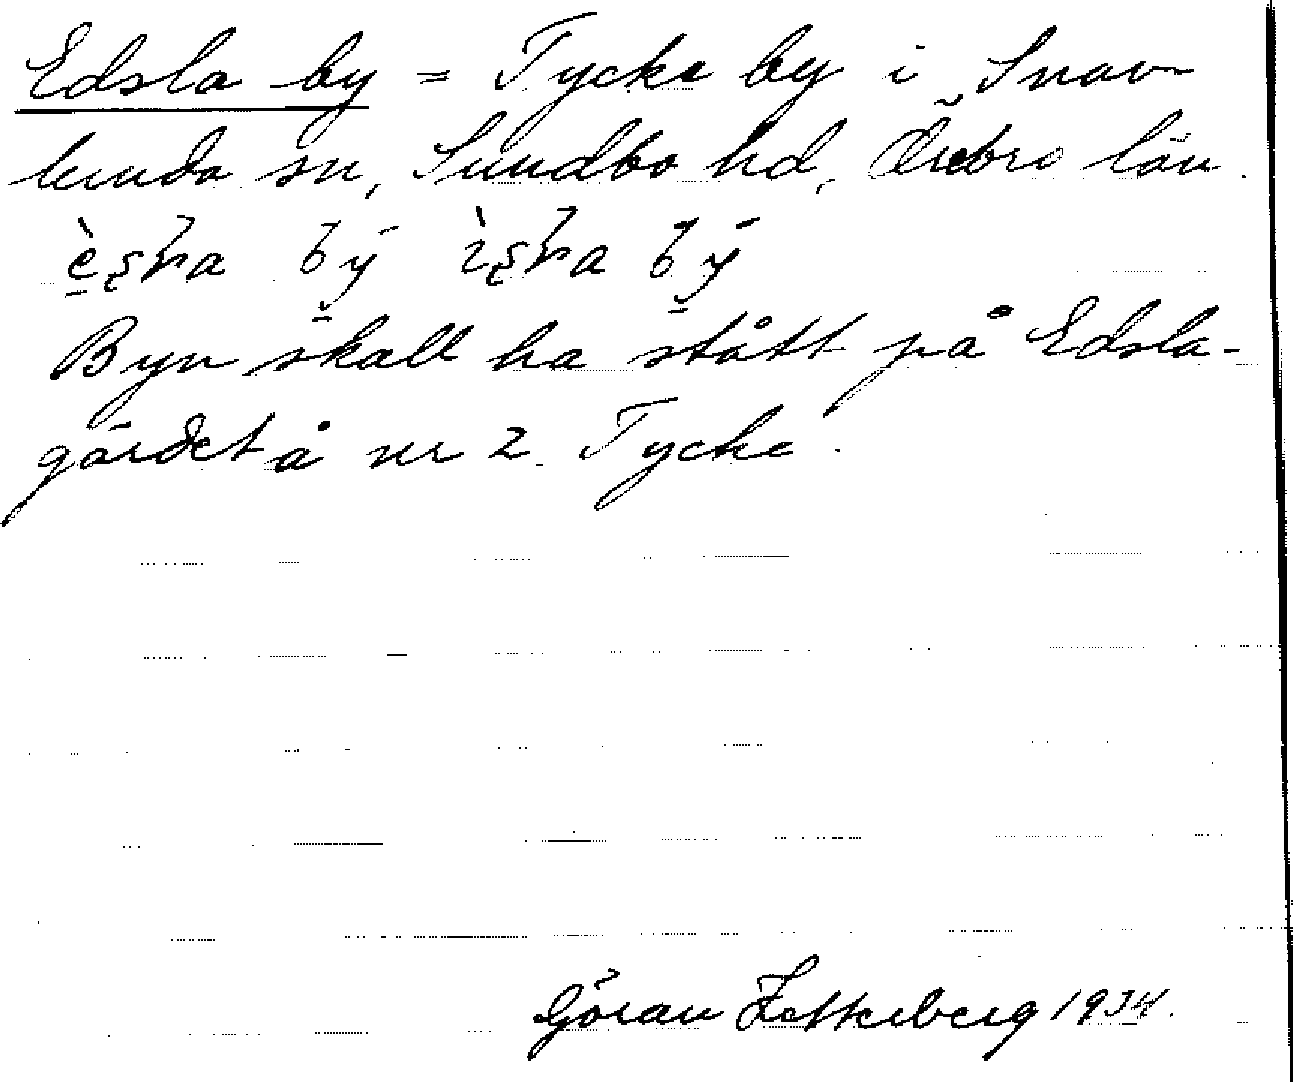 Edsla by = Tycke by i Snav
lunda sn, Sundbo hd, Örebro län.
Byn skall ha stått på Edsla-
gärdet å nr 2 Tycke.
Göran Zetterberg 1934.